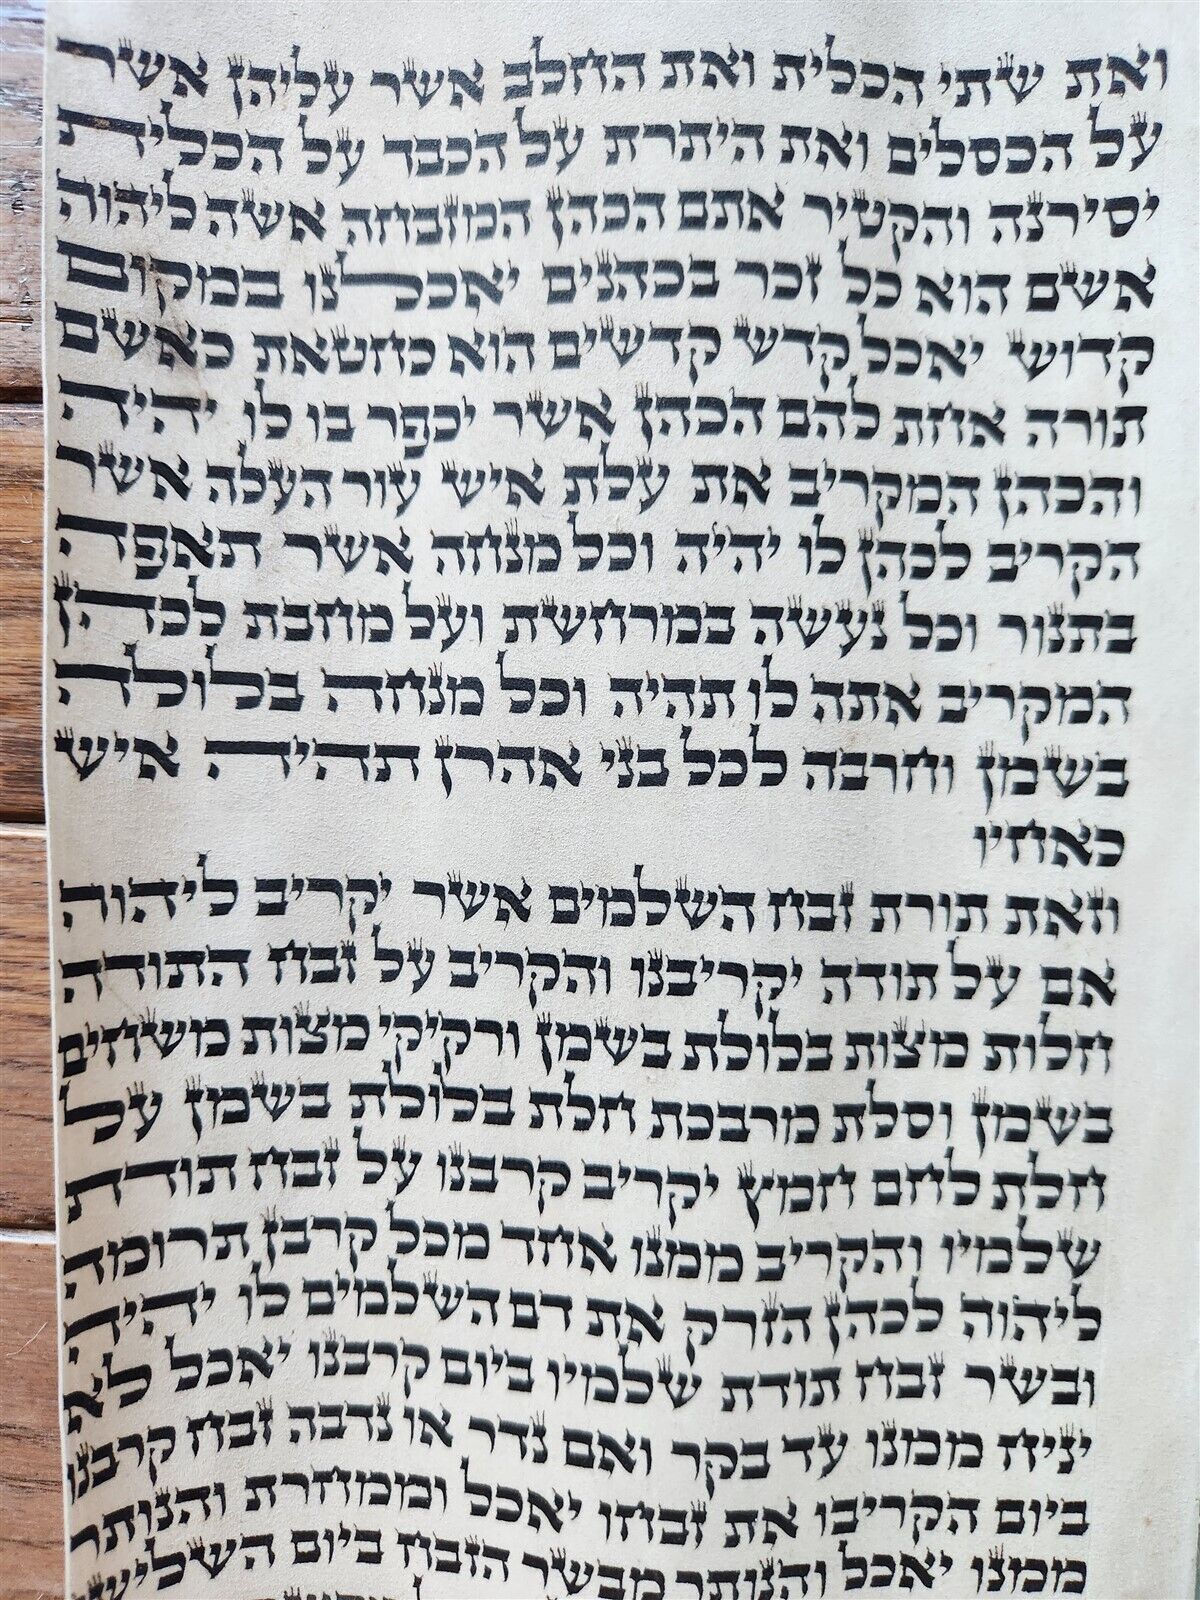 ואת שתי הכלית ואת החלב אשר עליהן אשר
על הכסלים ואת היתרת על הכבד על הכלית
יסירנה והקטיר אתם הכהן המזבחה אשה ליהוה
אשם הוא כל זכר בכהנים יאכלנו במקום
קדוש יאכל קדש קדשים הוא כחטאת כאשם
תורה אחת להם הכהן אשר יכפר בו לו יהיה
והכהן המקריב את עלת איש עור העלה אשר
הקריב לכהן לו יהיה וכל מנחה אשר תאפה
בתנור וכל נעשה במרחשת ועל מחבת לכהן
המקריב אתה לו תהיה וכל מנחה בלולה
בשמן וחרבה לכל בני אהרן תהיה איש
כאחיו
וזאת תורת זבח השלמים אשר יקריב ליהוה
אם על תודה יקריבנו והקריב על זבח התודה
חלות מצות בלולת בשמן ורקיקי מצות משחים
בשמן וסלת מרבכת חלת בלולת בשמן על
חלת לחם חמץ יקריב קרבנו על זבח תודת
שלמיו והקריב ממנו אחד מכל קרבן תרומה
ליהוה לכהן הזרק את דם השלמים לו יהיה
ובשר זבח תודת שלמיו ביום קרבנו יאכל לא
יניח ממנו עד בקר ואם נדר או נדבה זבח קרבנו
ביום הקריבו את זבחו יאכל וממחרת והנותר
ממנו יאכל והנותר מבשר הזבח ביום השלישי